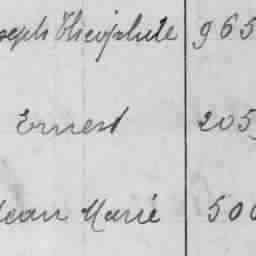 Joseph Théophile 965
Ernest 205
Jean Marie 500